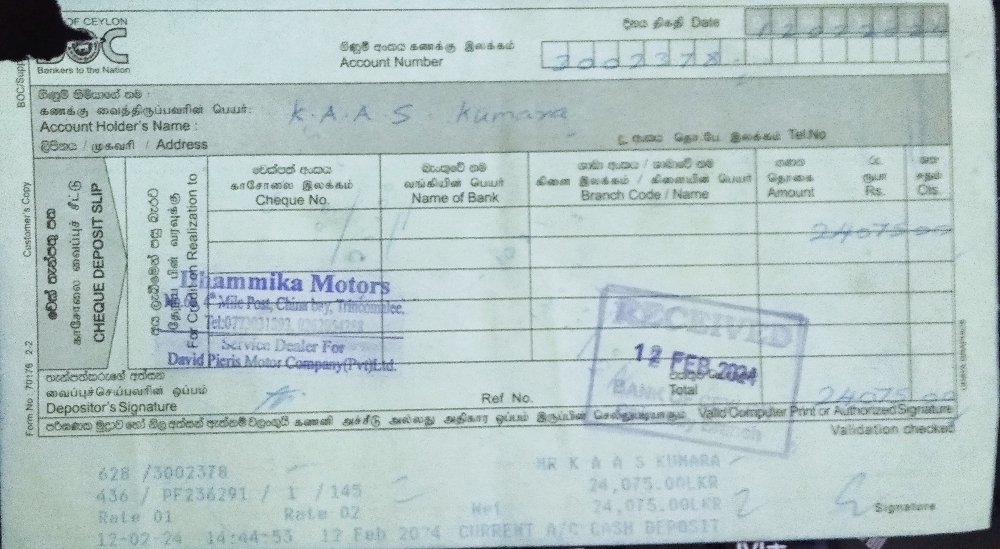 OF CEYLON
BOC
Bankers to the Nation
දිනය திகதி Date
12022024
ගිණුම් අංකය கணக்கு இலக்கம்
Account Number
3002378
ගිණුම් හිමියාගේ නම :
கணக்கு வைத்திருப்பவரின் பெயர்:
Account Holder's Name :
K.A.A S Kumara
ලිපිනය / முகவரி / Address
Tel.No
BOC/Supp
Customer's Copy
Form No : 70176 2-2
චෙක් තැන්පතු පත
காசோலை வைப்புச் சீட்டு
CHEQUE DEPOSIT SLIP
For Credit on Realization to
චෙක්පත් අංකය
காசோலை இலக்கம்
Cheque No.
බැංකුවේ නම
வங்கியின் பெயர்
Name of Bank
ශාඛා අංකය / ශාඛාවේ නම
கிளை இலக்கம் / கிளையின் பெயர்
Branch Code / Name
ගණන රු. ශත
தொகை ரூபா சதம்
Amount Rs. Cts.
24075 00
Dhammika Motors
4th Mile Post, China bay, Trincomalee.
Service Dealer For
David Pieris Motor Company(Pvt)Ltd.
RECEIVED
12 FEB 2024
BANK OF CEYLON
Branch
තැන්පත්කරුගේ අත්සන
வைப்புச்செய்பவரின் ஒப்பம்
Depositor's Signature
Ref No.
Total
24075 00
කණனி அச்சீடு அல்லது அதிகார ஒப்பம் இருப்பின் செல்லுபடியாகும் Valid Computer Print or Authorized Signature
Validation checked
628 /3002378
MR K A A S KUMARA
436 / PF236291 / 1 / 145
24,075.00LKR
Rate 01 Rate 02 Net 24,075.00LKR
Signature
12-02-24 14:44-53 12 Feb 2024 CURRENT A/C CASH DEPOSIT